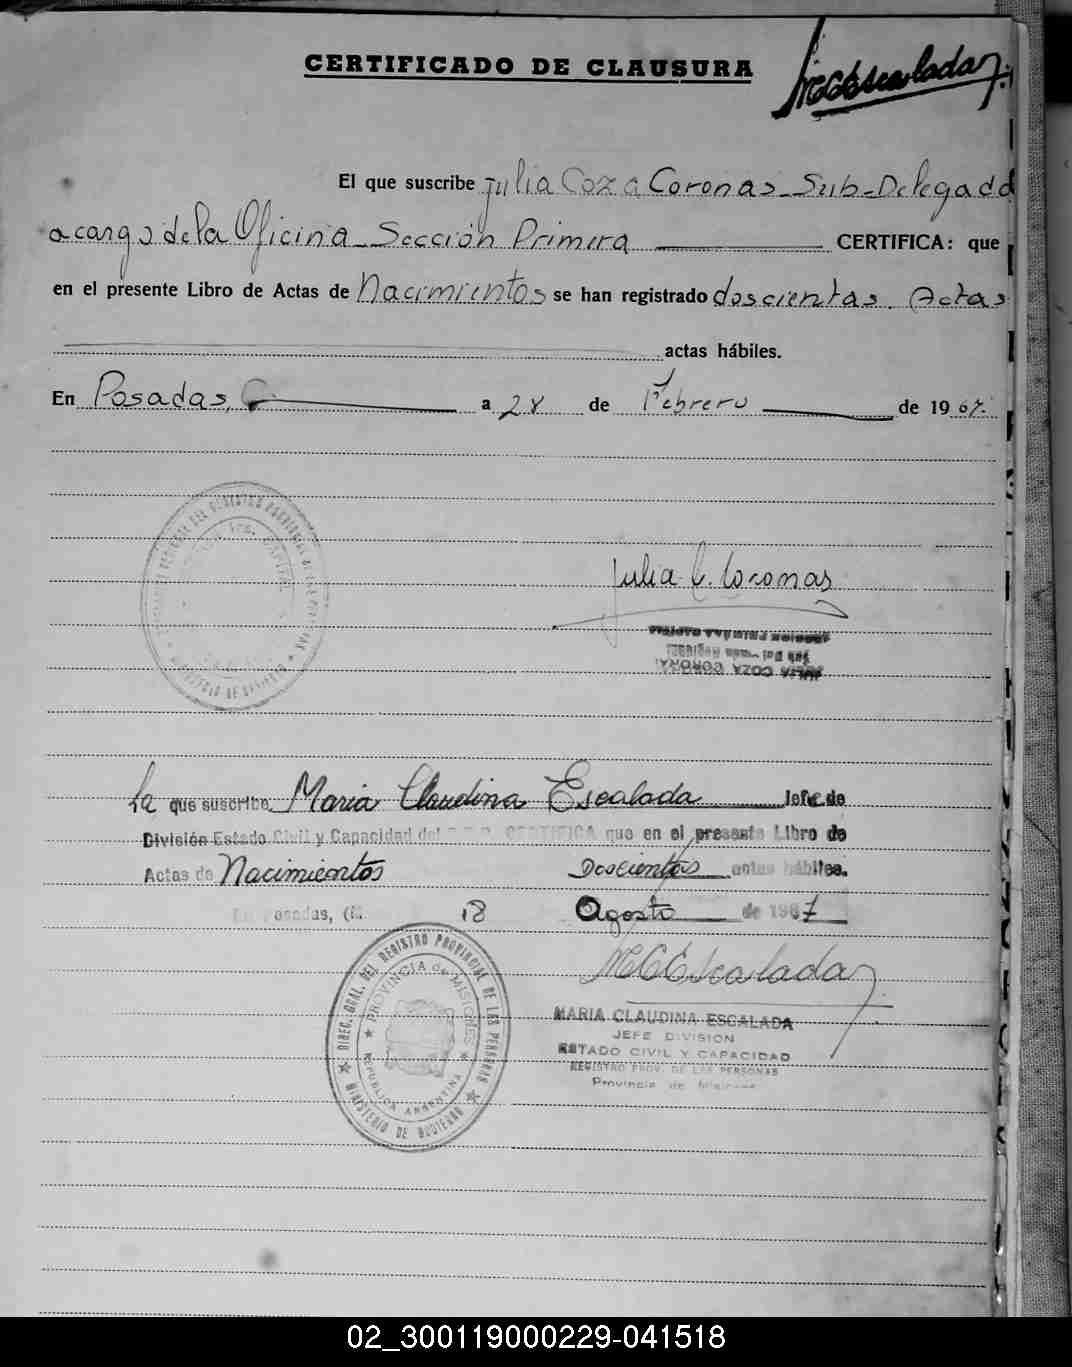 CERTIFICADO DE CLAUSURA
MCEscalada
El que suscribe Julia Coza Coronas Sub-Delegada
a cargo de la Oficina Sección Primera CERTIFICA: que
en el presente Libro de Actas de Nacimientos se han registrado doscientas Actas
actas hábiles.
En Posadas, a 28 de Febrero de 1967.
Julia C. Coronas
JULIA COZA CORONAS
La que suscribe Maria Claudina Escalada Jefe de
División Estado Civil y Capacidad del CERTIFICA que en el presente Libro de
Actas de Nacimientos Doscientas actas hábiles.
Posadas, 18 Agosto de 1967
MCEscalada
MARIA CLAUDINA ESCALADA
JEFE DIVISION
ESTADO CIVIL Y CAPACIDAD
REGISTRO PROV. DE LAS PERSONAS
Provincia de Misiones
DIREC. GRAL. DEL REGISTRO PROVINCIAL DE LAS PERSONAS
MINISTERIO DE GOBIERNO
PROVINCIA de MISIONES
REPUBLICA ARGENTINA
02_300119000229-041518